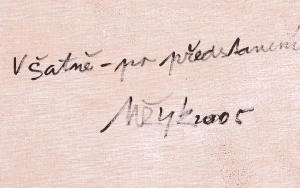 V šatně - po představení
2005